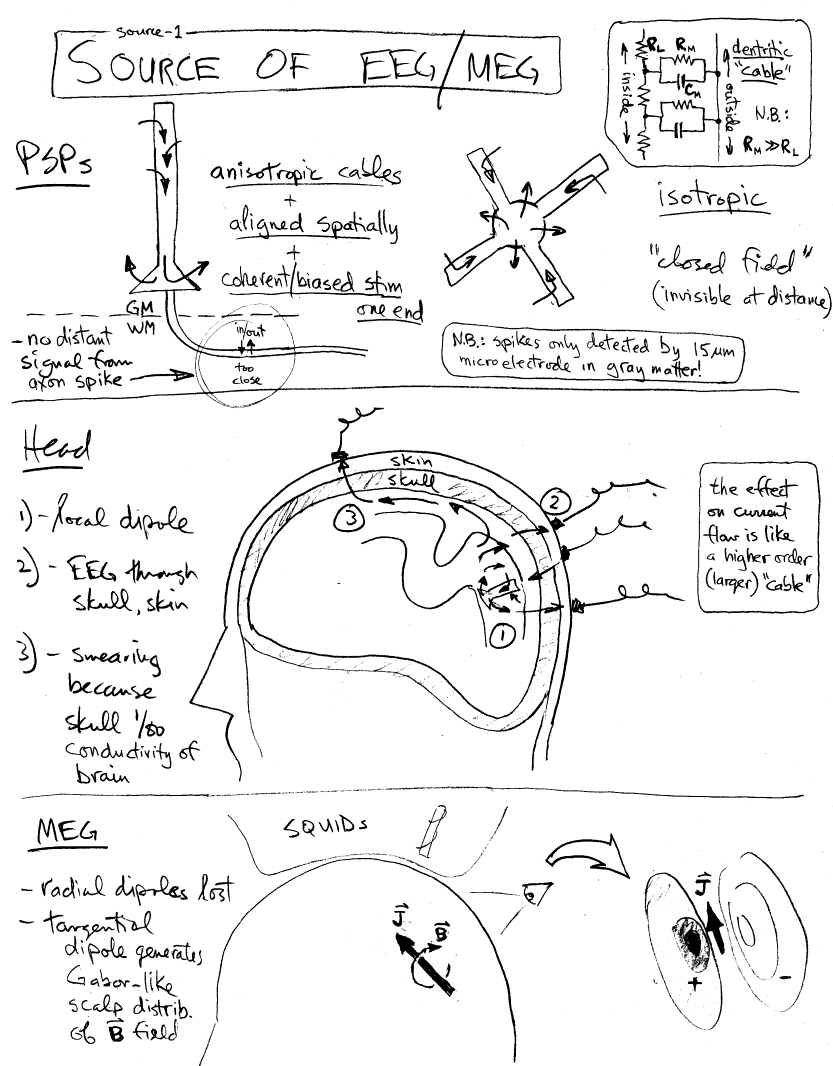 source-1
SOURCE OF EEG/MEG
PSPs
anisotropic cables
+
aligned spatially
+
coherent/biased stim
one end
GM
WM
- no distant
signal from
axon spike
in/out
too
close
R_L
R_M
C_M
inside
outside
dentritic
"cable"
N.B.:
R_M >> R_L
isotropic
"closed field"
(invisible at distance)
N.B.: spikes only detected by 15 μm
microelectrode in gray matter!
Head
1) - local dipole
2) - EEG through
skull, skin
3) - smearing
because
skull 1/80
conductivity of
brain
skin
skull
3
2
1
the effect
on current
flow is like
a higher order
(larger) "cable"
MEG
- radial dipoles lost
- tangential
dipole generates
Gabor-like
scalp distrib.
of B⃗ field
SQUIDs
J⃗
B⃗
J⃗
+
-